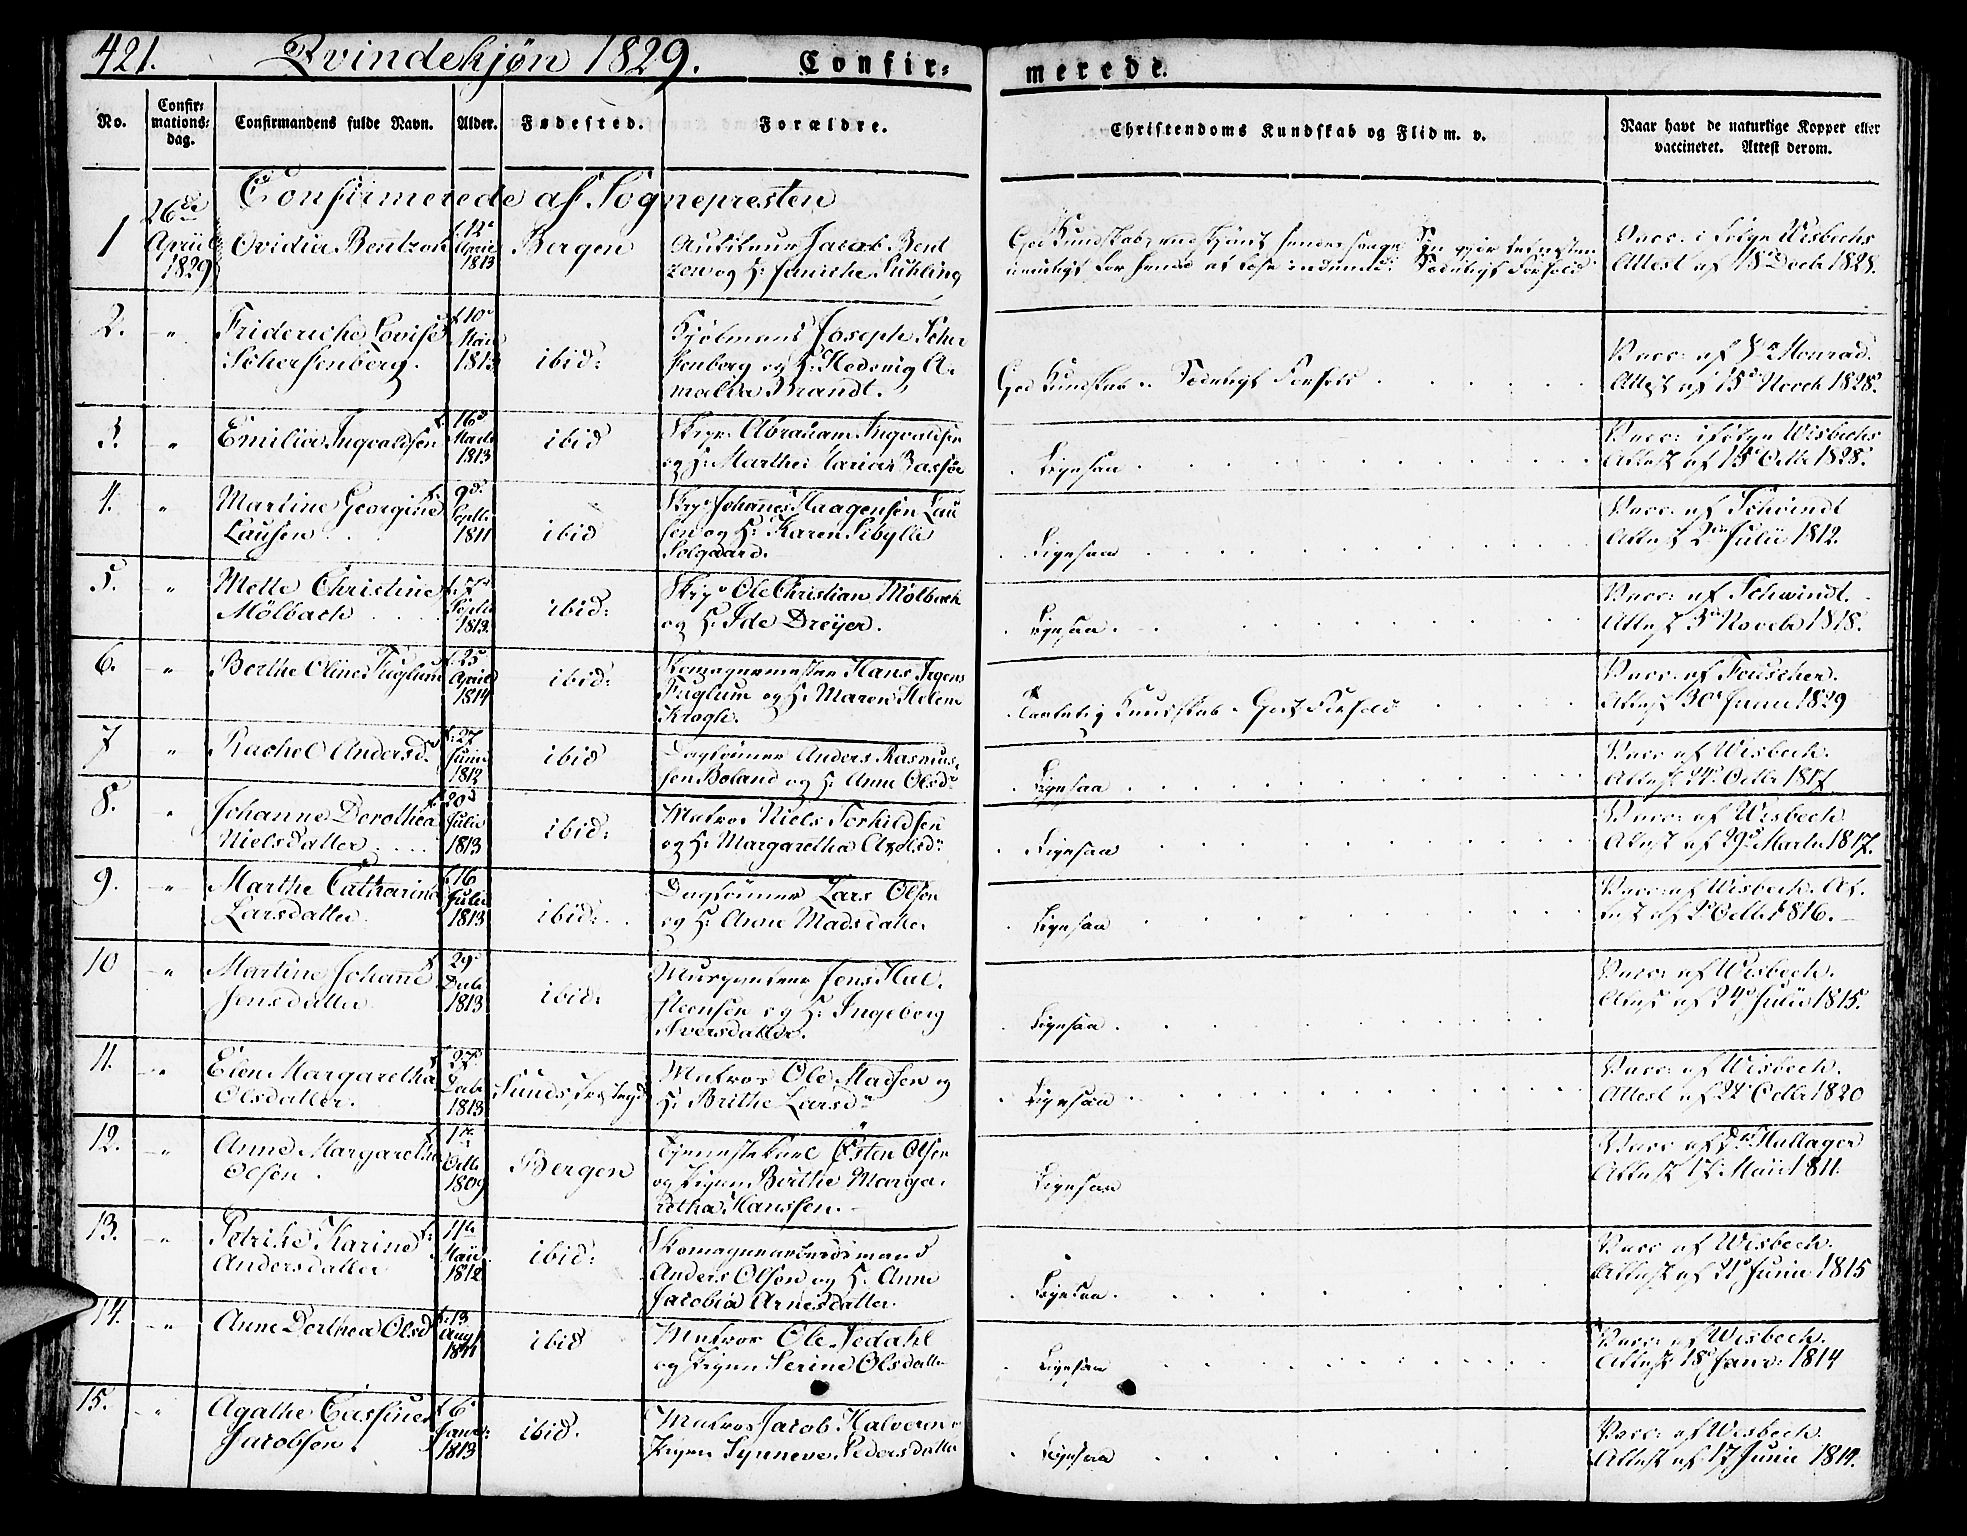 421. Qvindekjøn 1829. Confir-
merede.
No.
Confir-
mations-
dag.
Confirmandens fulde Navn.
Alder.
Fødested.
Forældre.
Christendoms Kundskab og Flid m. v.
Naar havt de naturlige Kopper eller
vaccineret. Attest derom.
Confirmerede af Sognepresten
1
26de
April
1829
Ovidia Bentzon
April
1813
Bergen
Auditeur Jacob Bent
zon og H:
Vacc: i følge Wisbechs
Attest af 18 Decbr 1828.
2. "
Frideriche Lovise
Schersenberg.
f. 10
Maii
1813
ibid:
Joseph Scher
senberg og H: Hedevig A-
malia Brandt.
God Kundskab. Sædeligt Forhold
Vacc: af Dr Monrad.
Attest af 15 Novbr 1828.
3. "
Emilia Ingvaldsen
f. 16
1813
ibid
Abraham Ingvaldsen
og H: Marthe Maria
Ligesaa
Vacc: ifølge Wisbechs
Attest af 15 Octbr 1828.
4. "
Martine Georgine
Lausen
9d
Septbr
1811
ibid
Johannes Haagensen Lau
sen og H: Karen Sibylle
Solgaard.
Ligesaa
Vacc: af Schwindt
Attest 2den Julii 1812.
5. "
Mette Christine
Mölbach
f. 7
Septbr
1813.
ibid:
Ole Christian Mölbach
og H: Ide Dreyer.
Ligesaa.
Vacc: af Schwindt.
Attest 5 Novbr 1818.
6. "
Berthe Oline Fuglum
f. 25
April
1814
ibid:
Skomagermester Hans Jrgens
Fuglum og H: Maren Helene
Krogh.
Kundskab. Godt Forhold
Vacc: af
Attest 30 Junii 1829
7 "
Rachel Andersd.
f: 27
Junii
1812
ibid
Anders Rasmus-
sen Boland og H: Anne Olsdr
Ligesaa
Vacc af Wisbech.
Attest Octbr 1817.
8. "
Johanne Dorothea
Nielsdatter
20d
Julii
1813
ibid:
Matros Niels Torkildsen
og H: Margaretha
Ligesaa
Vacc: af Wisbech
Attest af 29 Marts 1817.
9. "
Marthe Catharine
Larsdatter
f. 16
Julii
1813
ibid:
Lars Olsen
og H: Anne Madsdatter
Ligesaa
Vacc: af Wisbech. At-
test af Octbr 1816.
10 "
Martine Johanne
Jensdatter
29
Decbr
1813
ibid:
Jens Hal-
steensen og H: Ingeborg
Iversdatter.
Ligesaa
Vacc: af Wisbech.
Attest af 24 Julii 1815.
11. "
Elen Margaretha
Olsdatter.
27
1813
Matros Ole Madsen og
H: Brithe Larsdr
Ligesaa
Vacc: af Wisbech.
Attest af 22 Octbr 1820
12. "
Anne Margaretha
Olsen
17
Octbr
1809
Bergen
Tjenestekarl Østen Olsen
og Pigen Birthe Marga-
retha Hanssen.
Ligesaa
Vacc af Dr Hallager
Attest 17 Maii 1811.
13. "
Petrike Karine
Andersdatter
f. 11te
Maii
1812
ibid:
Skomagerarbeidsmand
Anders Olsen og H: Anne
Jacobia Arnesdatter.
Ligesaa
Vacc af Wisbech.
Attest af 21 Junii 1815
14. "
Anne Dorthea Olsd
f. 13
Augst
1811
ibid
Matros Ole Nedahl
og Pigen Serine Olsdatter
Ligesaa
Vacc: af Wisbech.
Attest 18 Janr: 1814
15. "
Agathe
Jacobsen.
f 6
Janr:
1813
ibid.
Matros Jacob Halvorn
Pigen Synneve Pedersdatter
Ligesaa
Vacc: af Wisbech.
Attest af 17 Junii 1814.